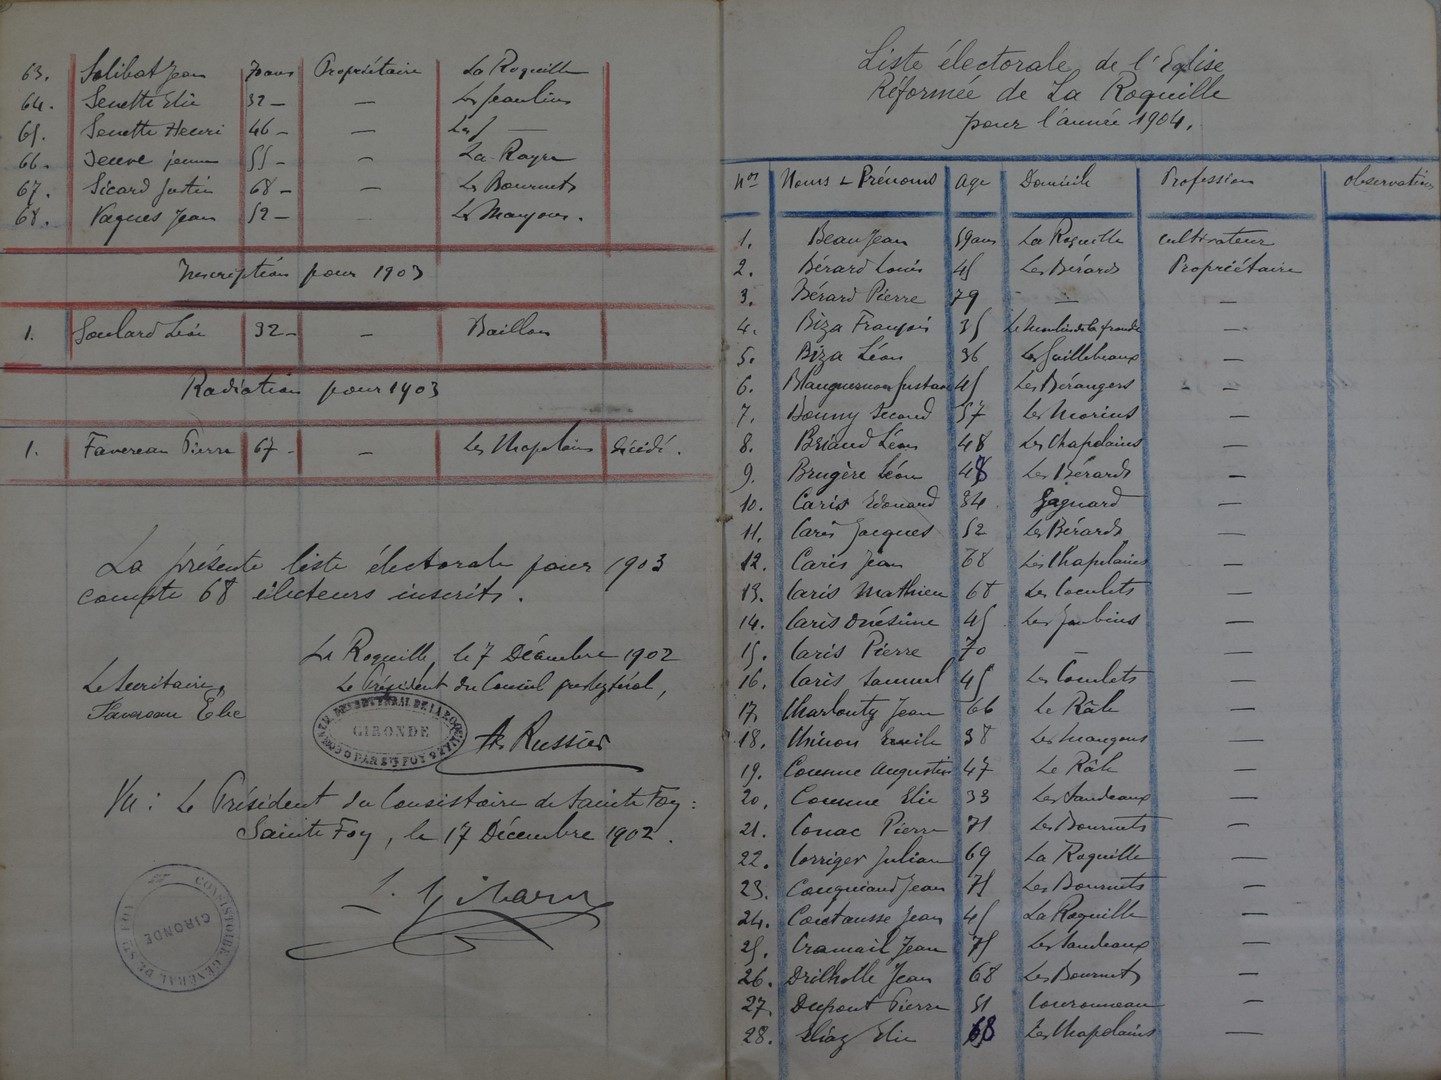 63. Salibat Jean 70 ans Propriétaire La Roquille
64. Senette Elie 32 – — Les Jeantins
65. Senette Henri 46 – — Les —
66. jeune 55 – — La Rayre
67. Sicard Justin 68 – — Les Bournets
68. Vaques Jean 52 – — Les Mangons.
Inscription pour 1903
1. Goulard Léo 32 – — Baillou
Radiation pour 1903
1. Favereau Pierre 67 – — Les Chapelains Décédé.
La présente liste électorale pour 1903
compte 68 électeurs inscrits.
La Roquille, le 7 Décembre 1902
Le Secrétaire, Le Président du Conseil presbytéral,
Favereau Elie
GIRONDE
Ah Russier
Vu : Le Président du Consistoire de Sainte Foy :
Sainte Foy, le 17 Décembre 1902.
CONSISTOIRE GÉNÉRAL DE STE FOY
GIRONDE
Liste électorale de l'Eglise
Réformée de La Roquille
pour l'année 1904.
Nos Noms & Prénoms Age Domicile Profession Observations
1. Beau Jean 59 ans La Roquille cultivateur
2. Bérard Louis 45 Les Bérards Propriétaire
3. Bérard Pierre 79 — —
4. Biza François 35 Le Moulin de la —
5. Biza Léon 36 Les Guillebeaux —
6. Gustave 45 Les Bérangers —
7. Bonny Second 57 Les Morins —
8. Briand Léon 48 Les Chapelains —
9. Brugère Léon 48 Les Bérards —
10. Caris Edouard 34 Gagnard —
11. Caris Jacques 52 Les Bérards —
12. Caris Jean 68 Les Chapelains —
13. Caris Mathieu 68 Les Coculets —
14. Caris Onésime 45 Les Jaubins —
15. Caris Pierre 70 — —
16. Caris Samuel 45 Les Coculets —
17. Charlouty Jean 66 Le Râle —
18. Chinon Emile 38 Les Mangons —
19. Cosme Augustin 47 Le Râle —
20. Cosme Elie 33 Les Jandeaux —
21. Couac Pierre 71 Les Bournets —
22. Corriger Julian 69 La Roquille —
23. Couquiaud Jean 75 Les Bournets —
24. Coutausse Jean 45 La Roquille —
25. Cramail Jean 75 Les Jandeaux —
26. Drilholle Jean 68 Les Bournets —
27. Dupont Pierre 51 Couronneau —
28. Eliaz Elie 68 Les Chapelains —